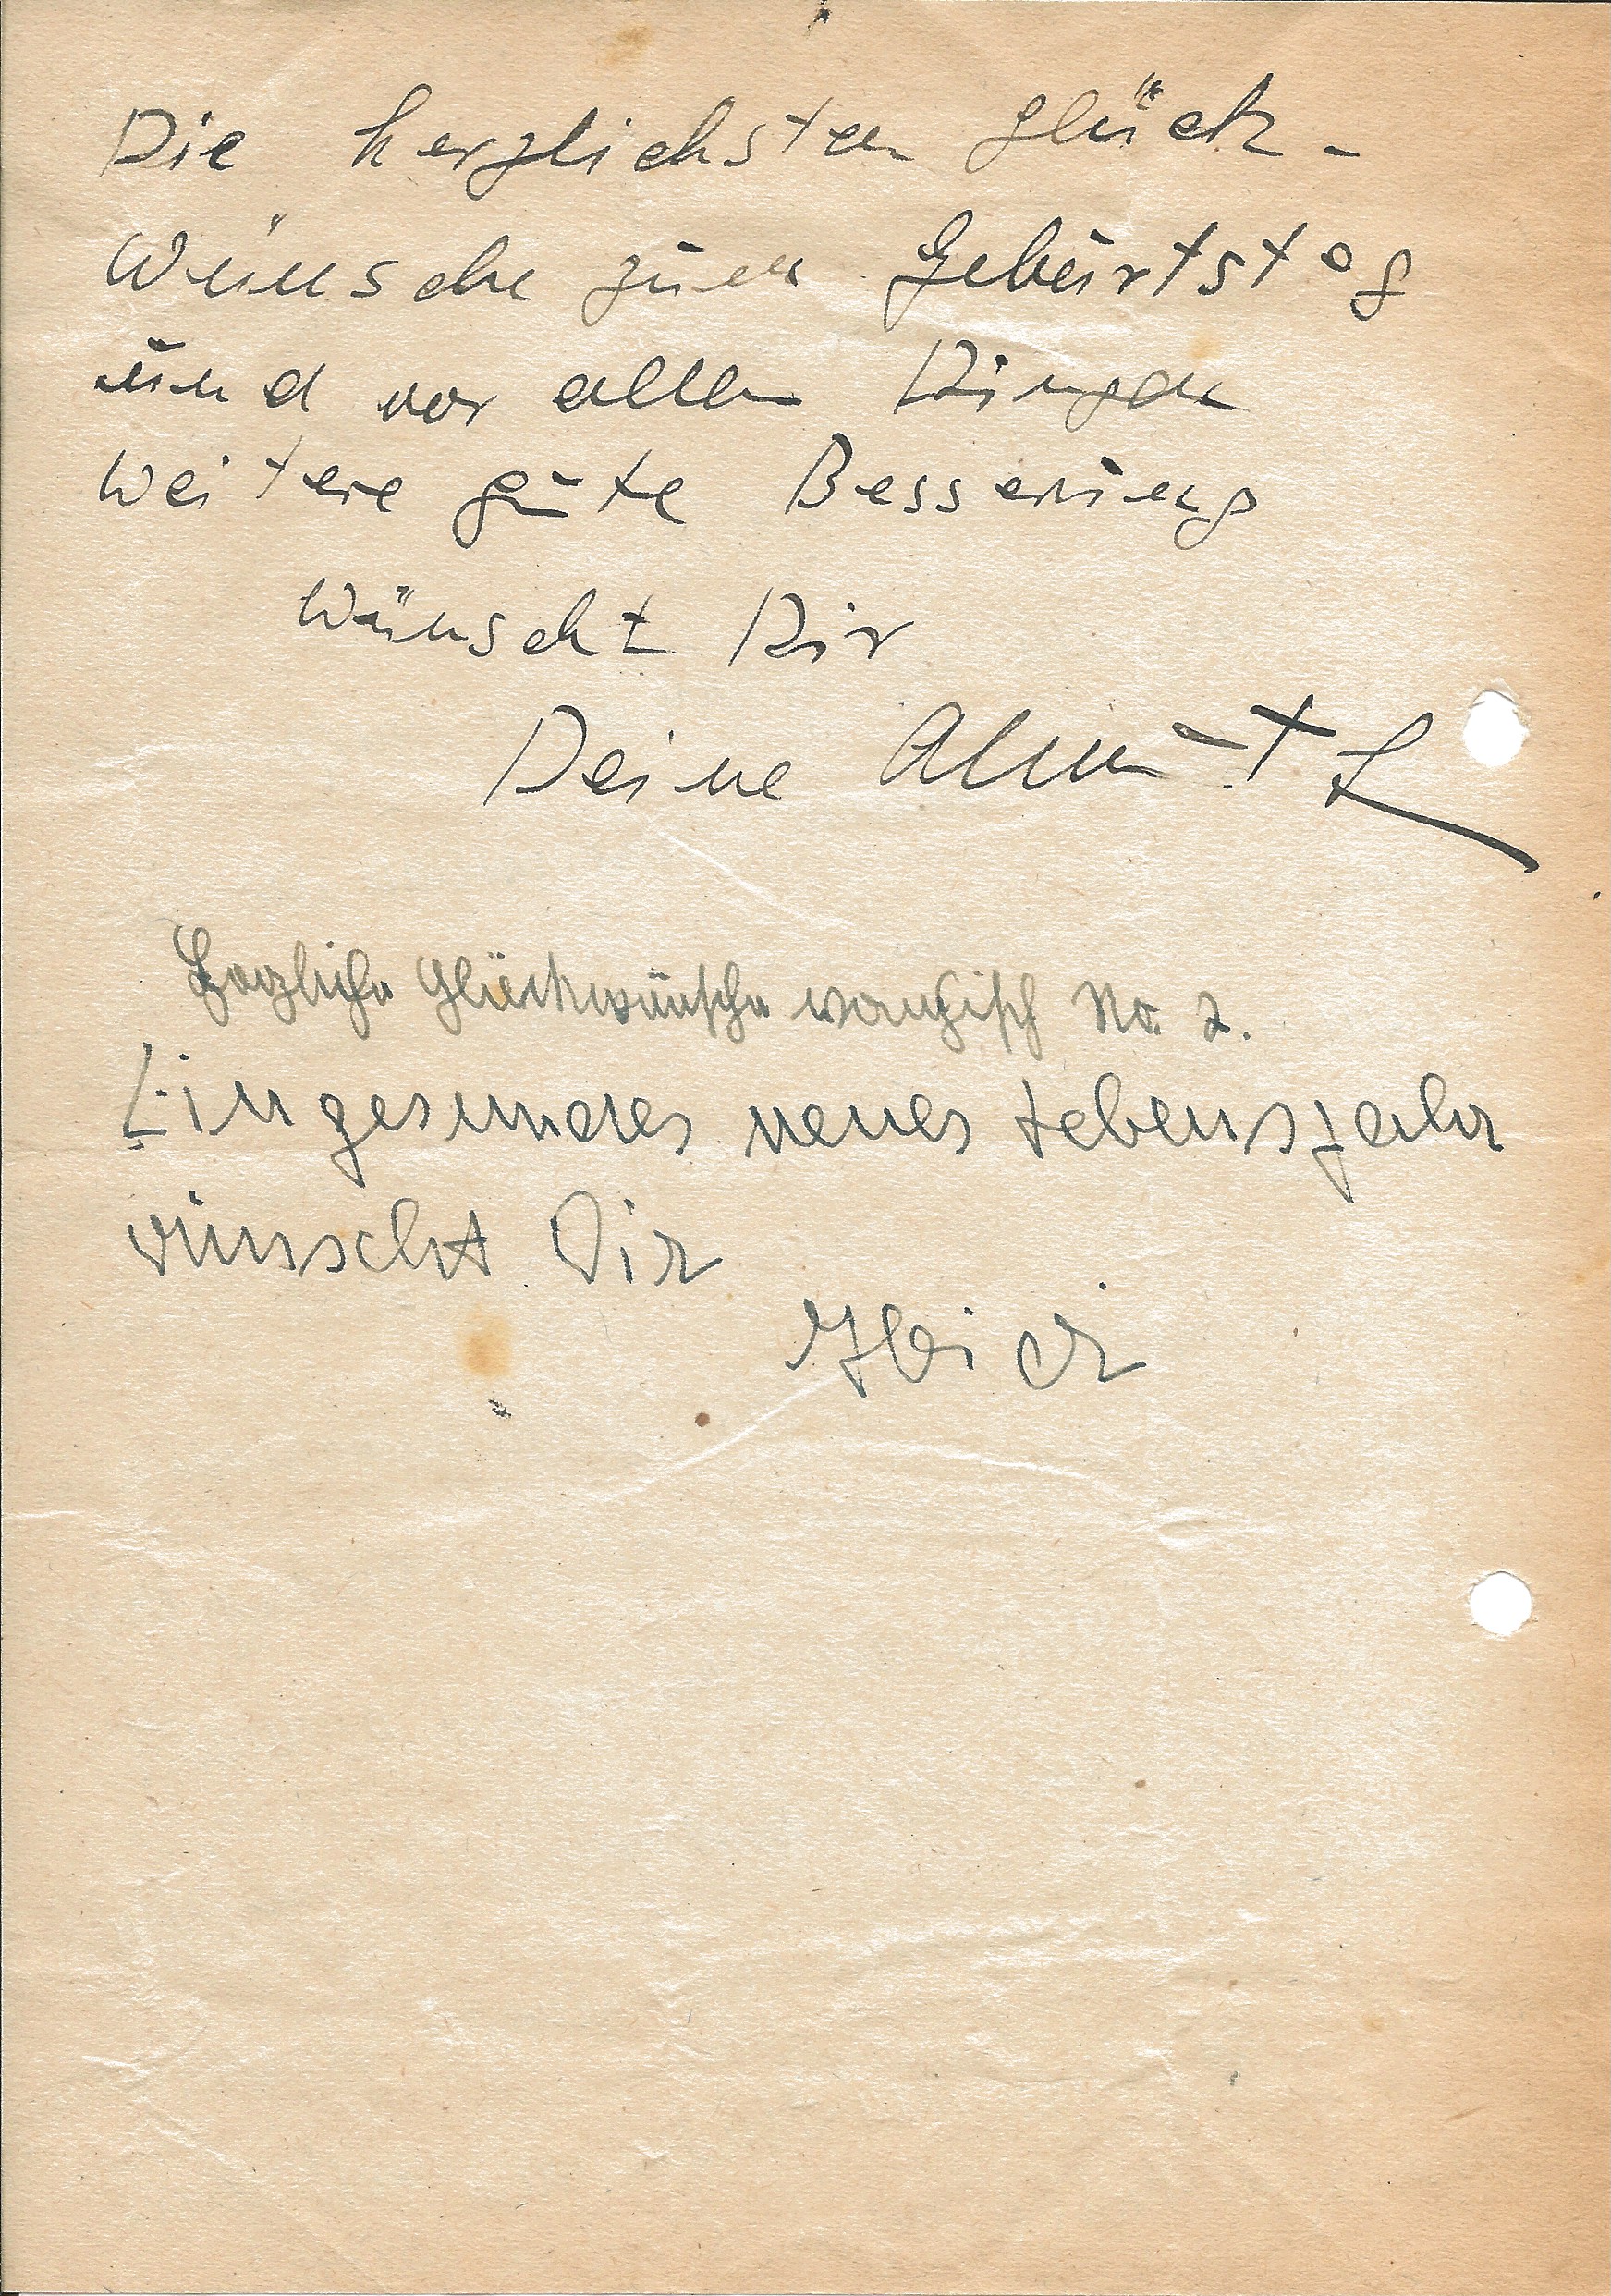 Die herzlichsten Glück-
wünsche zum Geburtstag
und vor allen Dingen
weitere gute Besserung
wünscht Dir
Deine Almut L
Herzliche Glückwünsche No. 2.
Ein gesundes neues Lebensjahr
wünscht Dir
Heidi